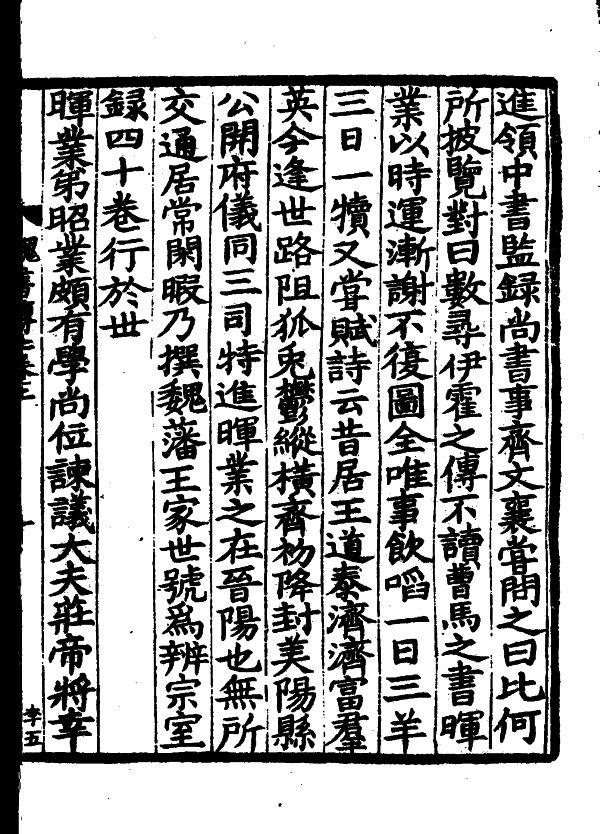 進領中書監録尚書事齊文襄甞問之曰比何
所披覽對曰數尋伊霍之傳不讀曹馬之書暉
業以時運漸謝不復圖全唯事飲啗一日三羊
三日一犢又甞賦詩云昔居王道泰濟濟富羣
英今逢世路阻狐兎鬱縱橫齊初降封美陽縣
公開府儀同三司特進暉業之在晉陽也無所
交通居常閑暇乃撰魏藩王家世號爲辨宗室
録四十卷行於世
暉業弟昭業頗有學尚位諫議大夫莊帝將幸
魏書傳七卷三
李五